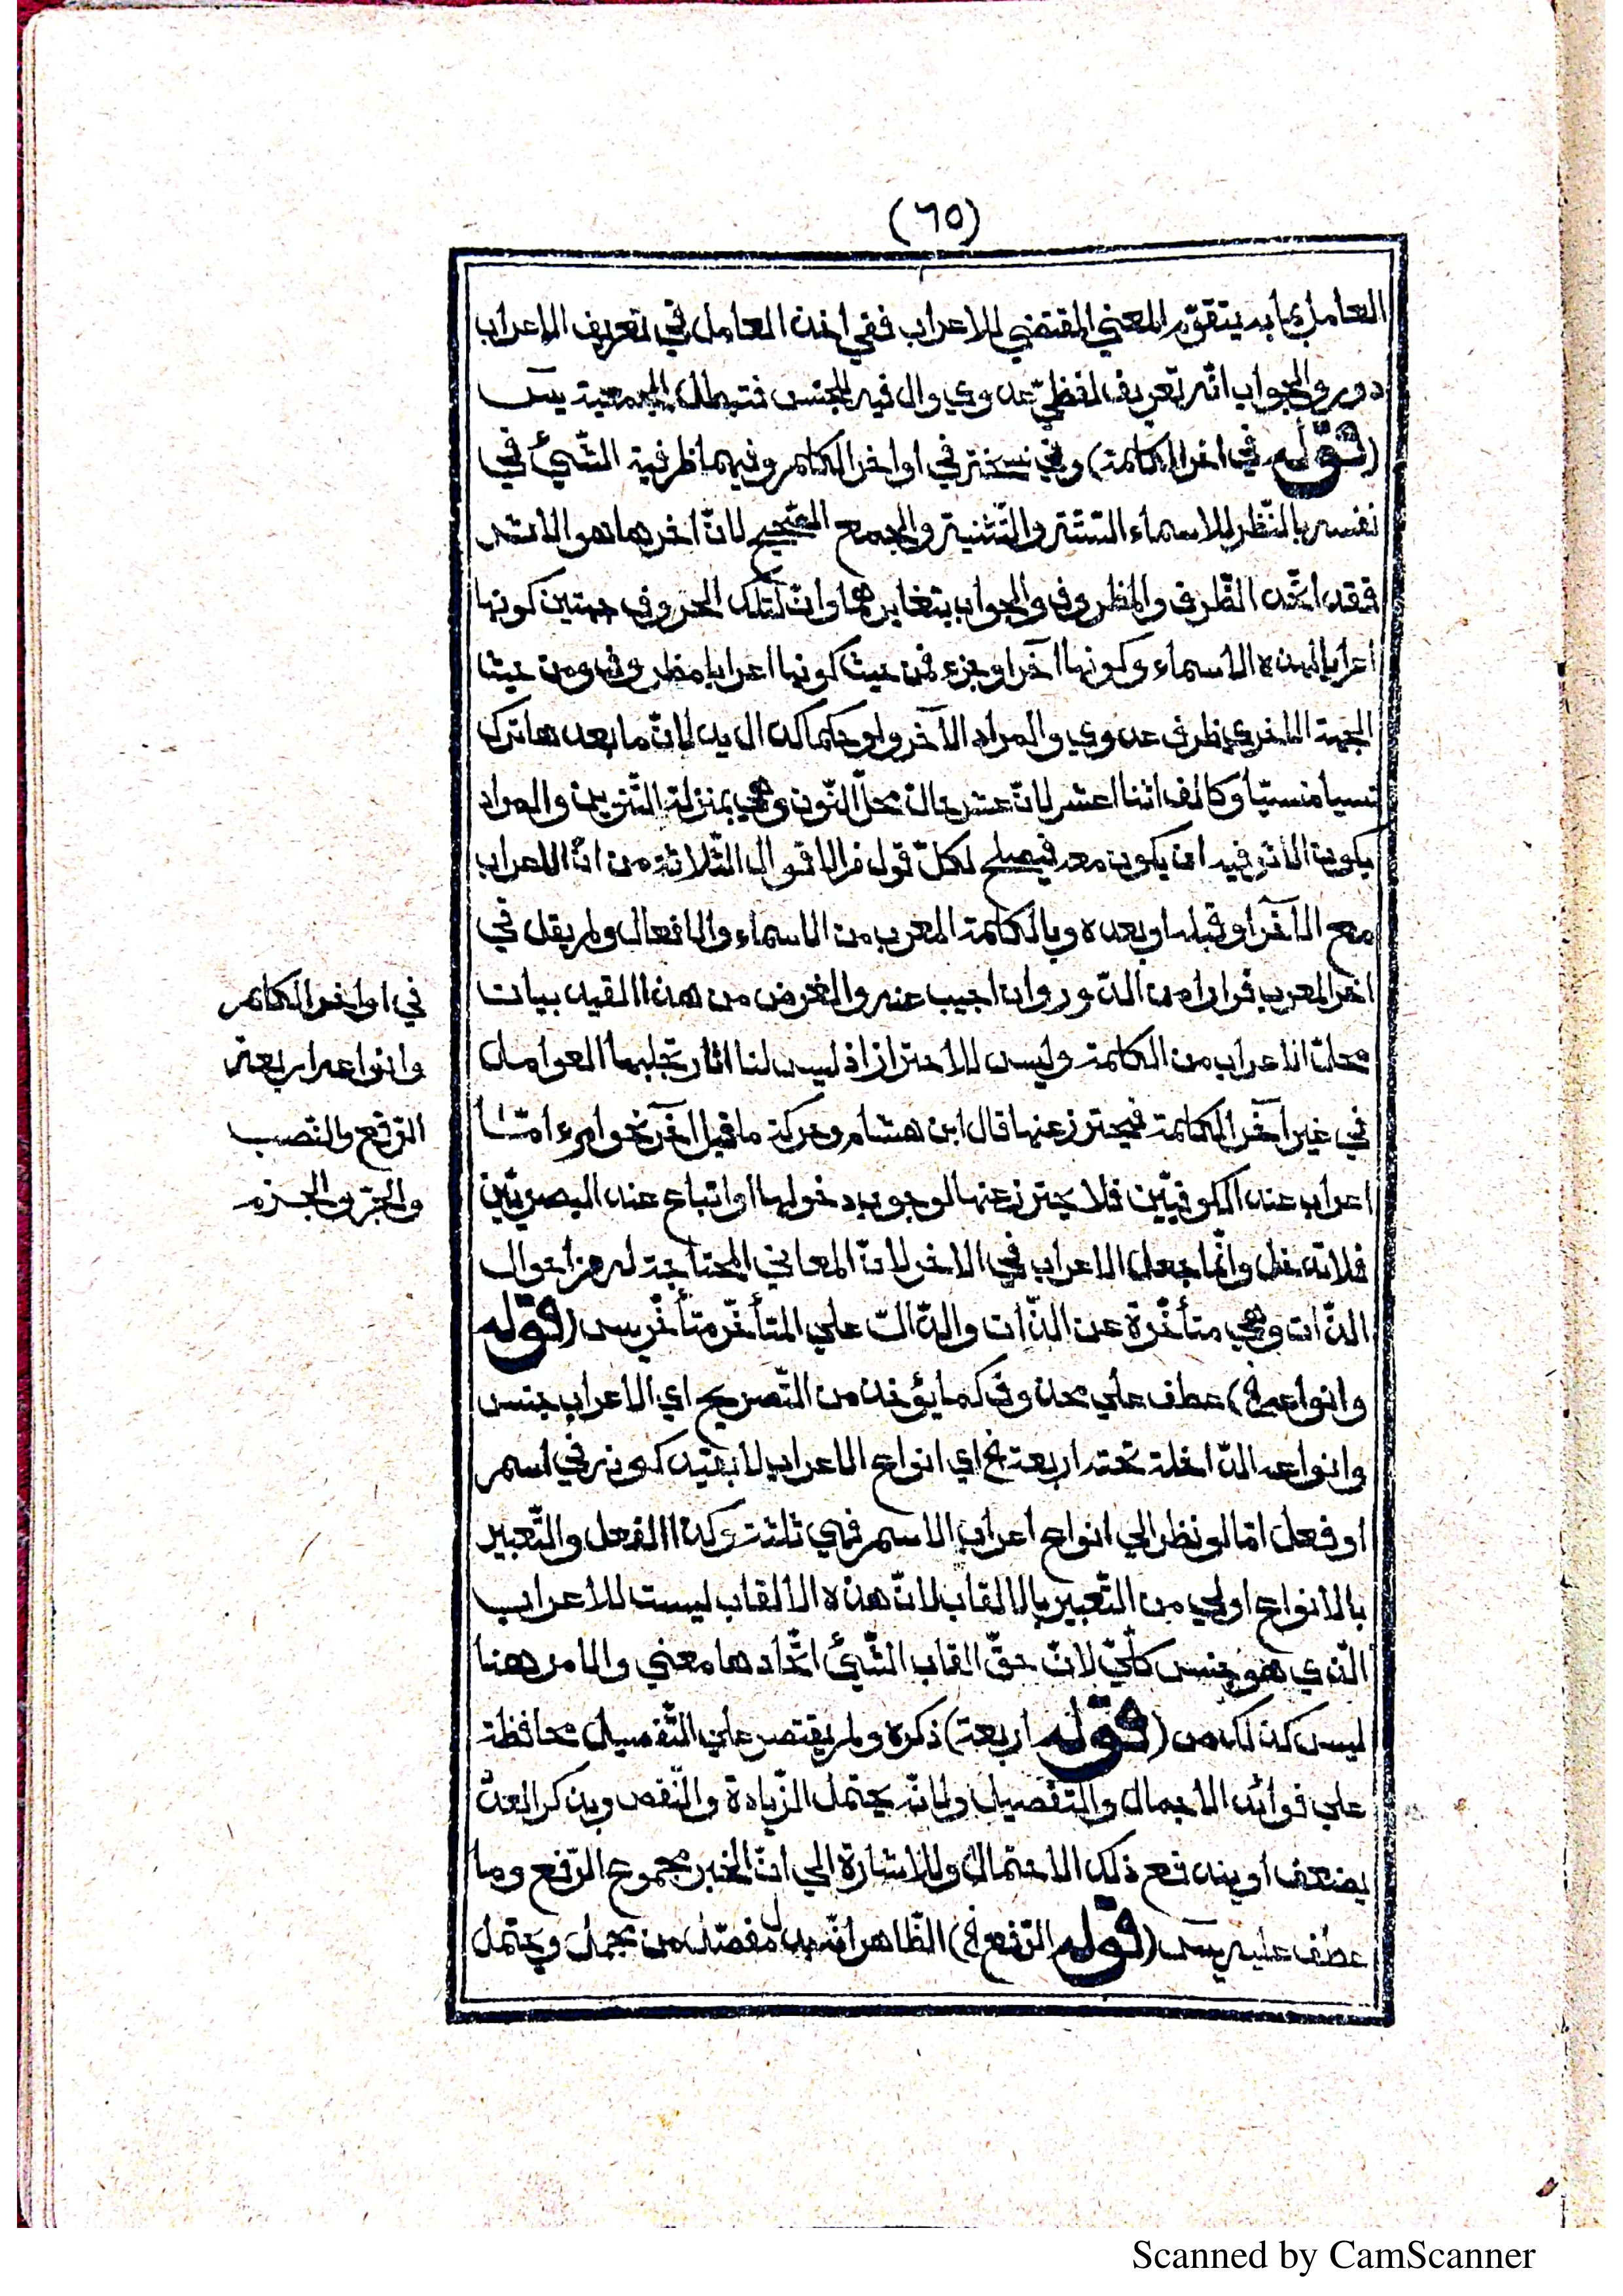 (٦٥)
العامل بما به يتقوّم المعني المقتضي للاعراب ففي اخذ العامل في تعريف الاعراب
دور والجواب انّه تعريف لفظيّ عدوي وال فيه للجنس فتبطل الجمعية يسٓ
(قوله في اخر الكلمة) وفي نسخة في اواخر الكلم وفيهما ظرفية الشّيئ في
نفسه بالنّظر للاسماء السّتّة والتّثنية والجمع الصّحيح لانّ اخرها هو الاثر
فقد اتّحد الظّرف والمظروف والجواب بتغايرهما وانّ لتلك الحروف جهتين كونها
اعرابا لهذه الاسماء وكونها آخرا وجزء فمن حيث كونها اعرابا مظروفة ومن حيث
الجهة الاخري ظرف عدوي والمراد الآخر ولو حكما كدال يد لانّ ما بعدها ترك
نسيا منسيّا وكالف اثنا عشر لانّ عشر حالّ محلّ النّون وهي بمنزلة التّنوين والمراد
بكون الاثر فيه ان يكون معه فيصلح لكلّ قول من الاقوال الثّلاثة من انّ الاعراب
مع الآخر او قبله او بعده وبالكلمة المعرب من الاسماء والافعال ولم يقل في
اخر المعرب فرارا من الدّور وان اجيب عنه والغرض من هذا القيد بيان
محلّ الاعراب من الكلمة وليس للاحتراز اذ ليس لنا اثار تجلبها العوامل
في غير آخر الكلمة فيحترز عنها قال ابن هشام وحركة ما قبل الآخر نحو امرء امّا
اعراب عند الكوفيّين فلا يحترز عنها لوجوب دخولها او اتباع عند البصريّين
فلا تدخل وانّما جعل الاعراب في الاخر لانّ المعاني المحتاجة له من احوال
الذّات وهي متأخّرة عن الذّات والدّالّ علي المتأخّر متأخّر يس (قوله
وانواعه الخ) عطف علي محذوف كما يؤخذ من التّصريح اي الاعراب جنس
وانواعه الدّاخلة تحته اربعة الخ اي انواع الاعراب لا بقيد كونه في اسم
او فعل امّا لو نظر الي انواع اعراب الاسم فهي ثلثة وكذا الفعل والتّعبير
بالانواع اولي من التّعبير بالالقاب لانّ هذه الالقاب ليست للاعراب
الّذي هو جنس كلّيّ لانّ حقّ القاب الشّيئ اتّحادها معني والامر هنا
ليس كذلك ص (قوله اربعة) ذكره ولم يقتصر علي التّفصيل محافظة
علي فوائد الاجمال والتّفصيل ولانّه يحتمل الزّيادة والنّقص وبذكر العدّ
يضعف او يندفع ذلك الاحتمال وللاشارة الي انّ الخبر مجموع الرّفع وما
عطف عليه يسٓ (قوله الرّفع الخ) الظّاهر انّه بدل مفصّل من مجمل ويحتمل
في اواخر الكلم
وانواعه اربعة
الرّفع والنّصب
والجرّ والجزم
Scanned by CamScanner